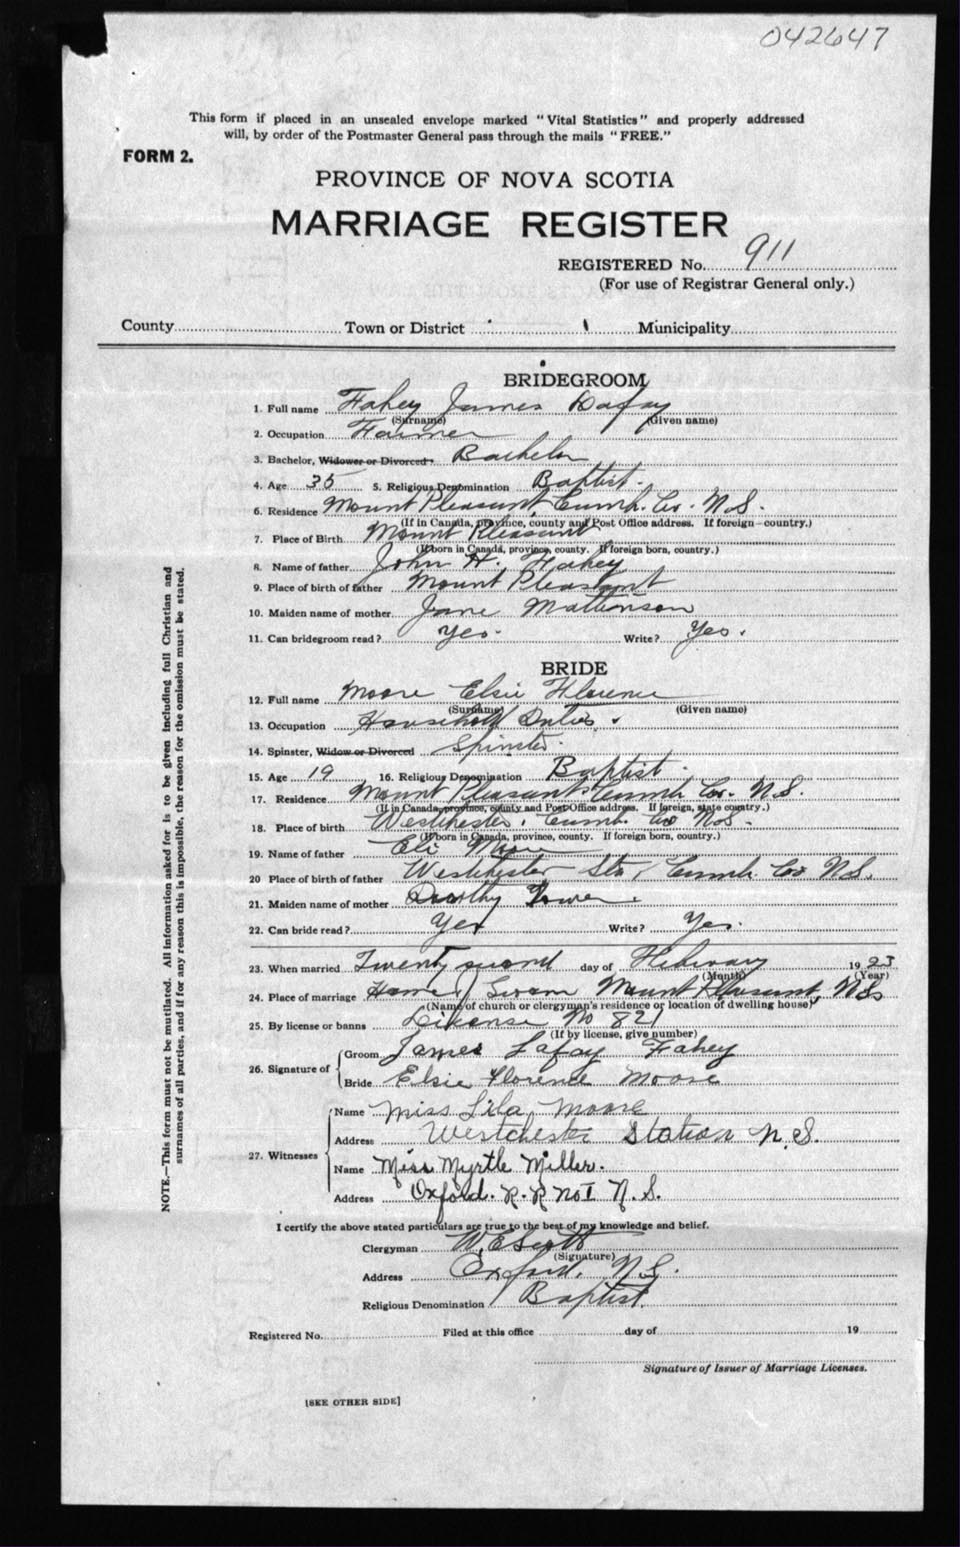 042647
This form if placed in an unsealed envelope marked "Vital Statistics" and properly addressed
will, by order of the Postmaster General pass through the mails "FREE."
FORM 2.
PROVINCE OF NOVA SCOTIA
MARRIAGE REGISTER
REGISTERED No. 911
(For use of Registrar General only.)
County Town or District Municipality
BRIDEGROOM
1. Full name Fahey James Lafay
(Surname) (Given name)
2. Occupation Farmer
3. Bachelor, Widower or Divorced. Bachelor
4. Age 35 5. Religious Denomination Baptist.
6. Residence Mount Pleasant, Cumb. Co. N.S.
(If in Canada, province, county and Post Office address. If foreign—country.)
7. Place of Birth Mount Pleasant
(If born in Canada, province, county. If foreign born, country.)
8. Name of father John H. Fahey
9. Place of birth of father Mount Pleasant
10. Maiden name of mother Jane
11. Can bridegroom read? Yes. Write? Yes.
BRIDE
12. Full name Moore Elsie Florence
(Surname) (Given name)
13. Occupation Household Duties.
14. Spinster, Widow or Divorced Spinster.
15. Age 19 16. Religious Denomination Baptist.
17. Residence Mount Pleasant Cumb. Co. N.S.
(If in Canada, province, county and Post Office address. If foreign, state country.)
18. Place of birth Westchester, Cumb. Co N.S.
(If born in Canada, province, county. If foreign born, country.)
19. Name of father Eli Moore
20 Place of birth of father Westchester Sta, Cumb. Co N.S.
21. Maiden name of mother Dorothy
22. Can bride read? Yes Write? Yes.
23. When married Twenty second day of February 1923
(Month) (Year)
24. Place of marriage Home Mount Pleasant, N.S
(Name of church or clergyman's residence or location of dwelling house)
25. By license or banns License No 821
(If by license, give number)
26. Signature of
Groom James Lafay Fahey
Bride Elsie Florence Moore
27. Witnesses
Name Miss Lila Moore
Address Westchester Station N.S.
Name Miss Myrtle Miller.
Address Oxford. R. R No 1 N.S.
I certify the above stated particulars are true to the best of my knowledge and belief.
Clergyman
(Signature)
Address Oxford, N.S.
Religious Denomination Baptist.
Registered No. Filed at this office day of 19
Signature of Issuer of Marriage Licenses.
[SEE OTHER SIDE]
NOTE.—This form must not be mutilated. All information asked for is to be given including full Christian and
surnames of all parties, and if for any reason this is impossible, the reason for the omission must be stated.